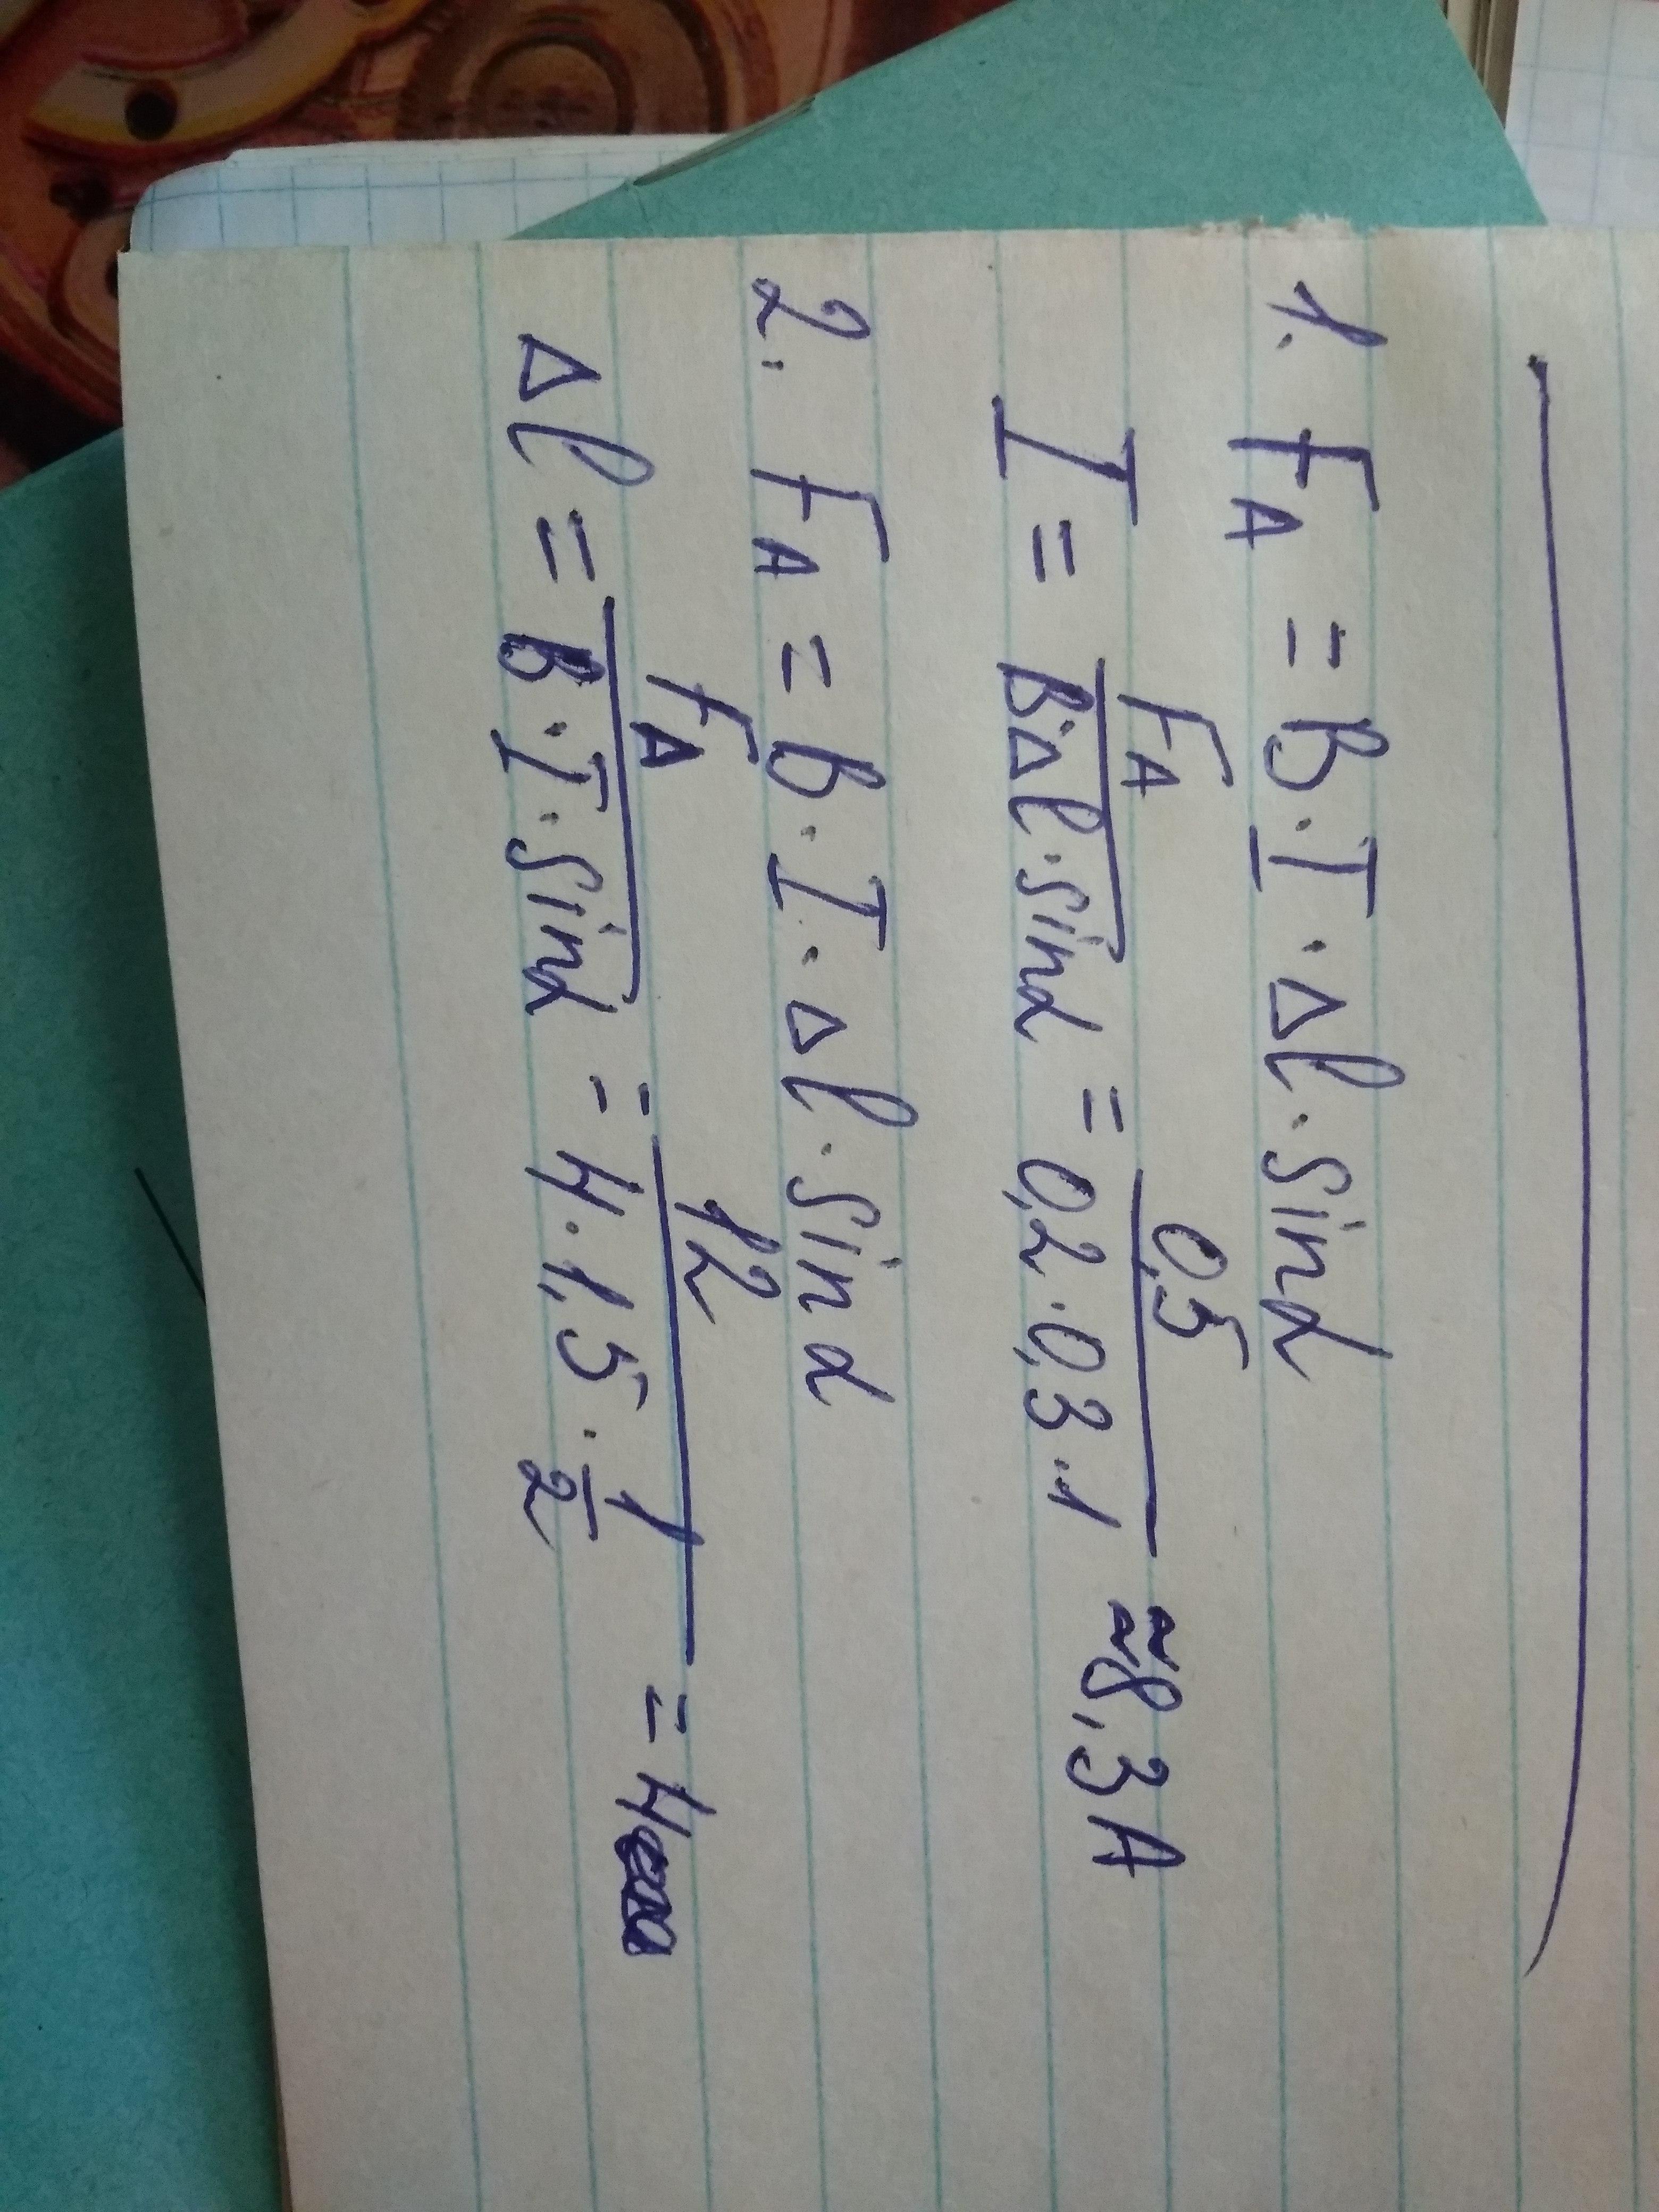 1. F_A = B · I · Δl · sinα
I = F_A / (B·Δl · sinα) = 0,5 / (0,2 · 0,3 · 1) ≈ 8,3 A
2. F_A = B · I · Δl · sinα
Δl = F_A / (B · I · sinα) = 12 / (4 · 1,5 · 1/2) = 4